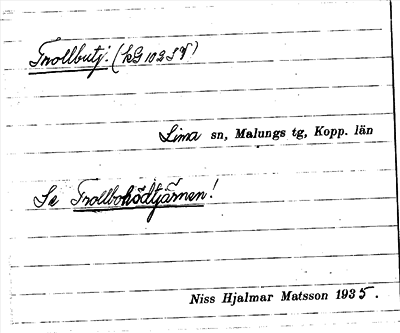 Trollbutj. (hG 102 S V)
Lima sn, Malungs tg, Kopp. län
Se Trollbohödtjärnen!
Niss Hjalmar Matsson 1935.